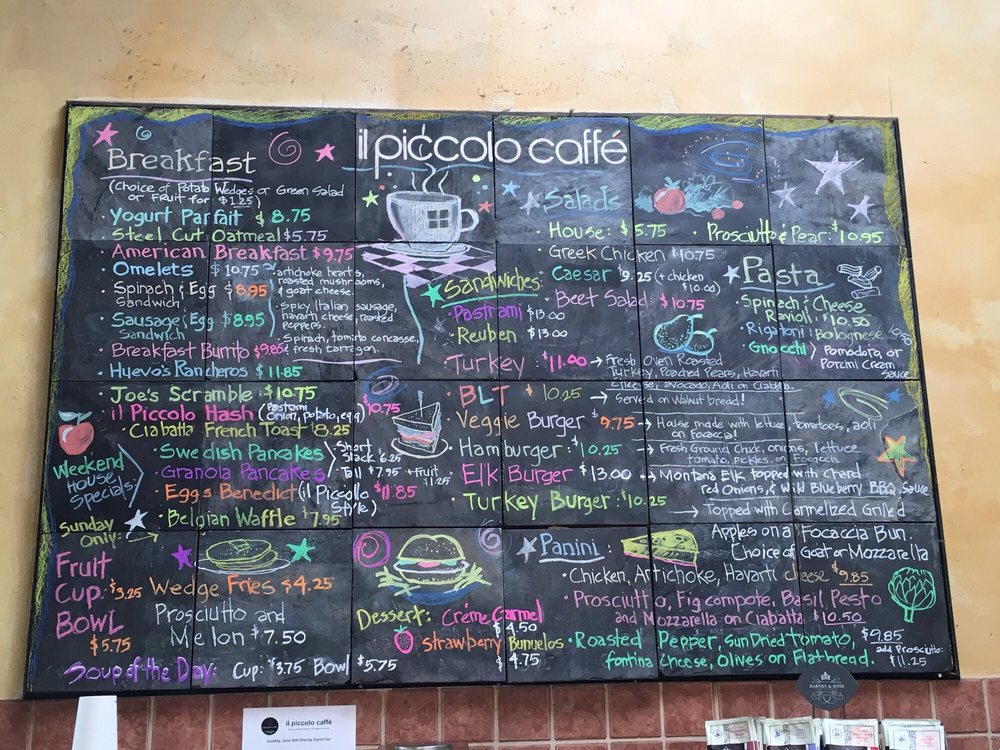 il piccolo caffé
Breakfast
(Choice of Potato Wedges or Green Salad
or Fruit for $1.25)
Yogurt Parfait $8.75
Steel Cut Oatmeal $5.75
American Breakfast $9.75
Omelets $10.75 artichoke hearts,
roasted mushrooms,
& goat cheese
Spinach & Egg $8.95
Sandwich
Spicy Italian sausage,
havarti cheese, roasted
peppers.
Sausage & Egg $8.95
Sandwich
Spinach, tomato concasse,
& fresh tarragon.
Breakfast Burrito $9.85
Huevo's Rancheros $11.85
Joe's Scramble $10.75
il Piccolo Hash (Pastrami $10.75
Onion, potato, egg)
Ciabatta French Toast 8.25
Weekend
House
Specials
Swedish Pancakes
Granola Pancakes
Short
Stack 6.25
Tall $7.95 + fruit
$1.25
Eggs Benedict (il Piccolo $11.85
Style)
Sunday
Only:
Belgian Waffle $7.95
Fruit
Cup: $3.25
Bowl
$5.75
Wedge Fries $4.25
Prosciutto and
Melon $7.50
Soup of the Day: Cup: $3.75 Bowl $5.75
Salads
House: $5.75
Greek Chicken $10.75
Caesar $9.25 (+ chicken
$10.00)
Beet Salad: $10.75
Prosciutto & Pear: $10.95
Pasta
Spinach & Cheese
Ravioli: $10.50
Rigatoni: Bolognese
Gnocchi Pomodoro, or
Porcini Cream
Sauce
Sandwiches:
Pastrami $13.00
Reuben $13.00
Turkey $11.00 → Fresh Oven Roasted
Turkey, Poached Pears, Havarti
Cheese, avocado, Aoli on Ciabatta.
BLT $10.25 → Served on Walnut bread!
Veggie Burger $9.75 → House made with lettuce, tomatoes, aoli
on Focaccia!
Hamburger $10.25 → Fresh Ground Chuck, onions, lettuce
tomato, pickles, on Focaccia
Elk Burger $13.00 → Montana Elk topped with Chard
red Onions, & Wild Blueberry BBQ Sauce
Turkey Burger: $10.25 → Topped with Carmelized Grilled
Apples on a Focaccia Bun.
Choice of Goat or Mozzarella
Panini:
Chicken, Artichoke, Havarti cheese $9.85
Prosciutto, Fig compote, Basil Pesto
and Mozzarella on Ciabatta $10.50
Roasted Pepper, Sun Dried Tomato, $9.85
fontina Cheese, Olives on Flatbread. add Prosciutto:
$11.25
Dessert: Créme Carmel
$4.50
Strawberry Bunuelos
$4.75
il piccolo caffé
Sunday, June 4th Charity Event For
HARNEY & SONS